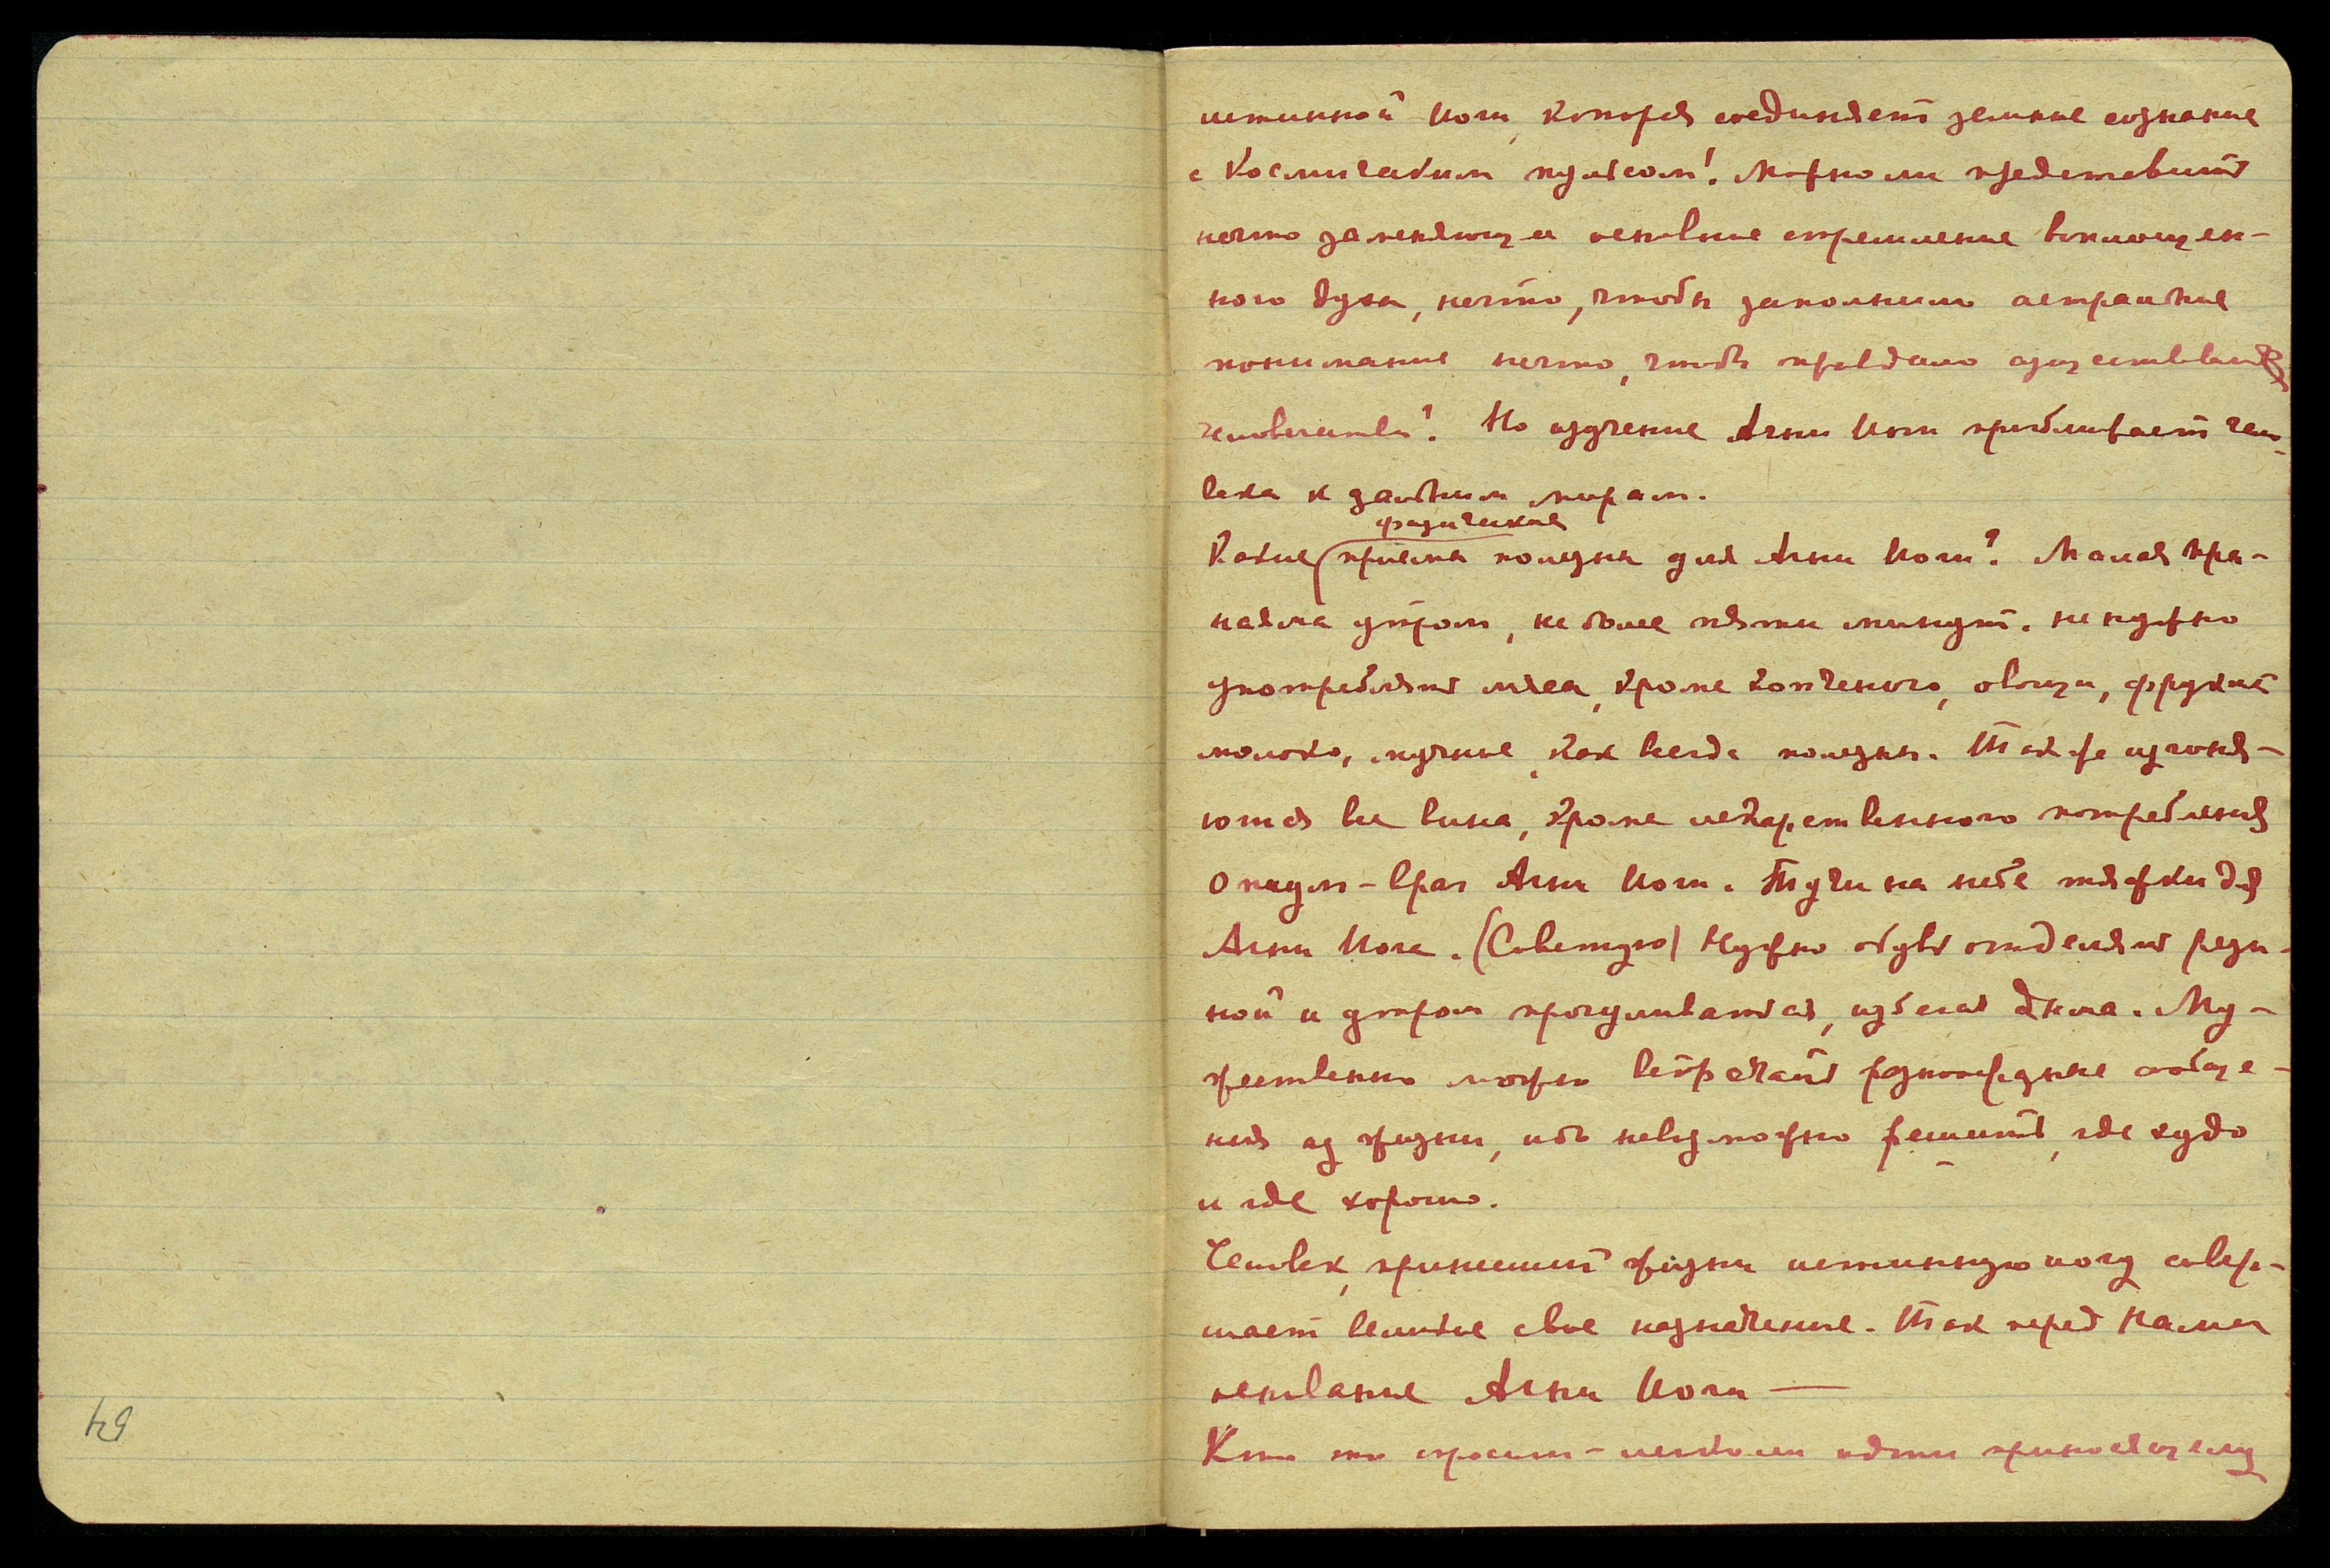 истинной Йоги, которая соединяет земные сознание
с Космическим пульсом! Можно ли представить
нечто заменяющее основные стремление воплощен-
ного духа, нечто, чтобы заполнило астральные
понимание нечто, чтобы оправдало существование
человечества? Но изучение Агни Йоги приближает чело-
века к дальним мирам.
физические
Какие приемы полезны для Агни Йоги? Малая пра-
наяма утром, не более пяти минут. не нужно
употреблять мяса, кроме копченого, овощи, фрукты
молоко, мучные, как всегда полезны. Также изгоня-
ются все вина, кроме лекарственного потребления
Опиум – враг Агни Йоги. Тучи на небе тяжки для
Агни Йога. (Советую) Нужно обувь отделять рези-
ной и утром прогуливаться, избегая дыма. Му-
жественно можно встречать разнообразные сообще-
ния из жизни, ибо невозможно решить, где худо
и где хорошо.
Человек, принесший жизни истинную йогу совер-
шает великое свое назначение. Так перед Нами
основание Агни Йоги —
Кто то спросит – легко ли идти приносящему
54